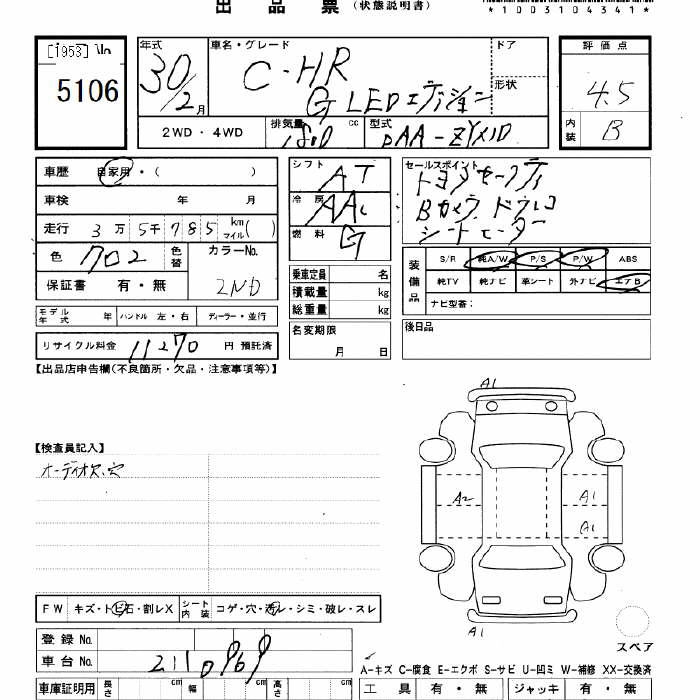 出品票 (状態説明書)
*1003104341*
[1953]
5106
年式
30/2月
車名・グレード
C-HR
G LEDエディション
ドア
形状
評価点
4.5
内装
B
2WD・4WD
排気量 1800 cc
型式
車歴 自家用・( )
車検 年 月
走行 3万 5千 785 km マイル( )
色 クロ2 色替
カラーNo. 2ND
保証書 有・無
モデル年式 年 ハンドル 左・右 ディーラー・並行
リサイクル料金 11270 円 預託済
シフト AT
冷房 AAC
燃料 G
乗車定員 名
積載量 kg
総重量 kg
名変期限
月 日
セールスポイント
トヨタセーフティ
Bカメラ ドラレコ
シートヒーター
装備品 S/R 純A/W P/S P/W ABS
純TV 純ナビ 革シート 外ナビ エアB
ナビ型番:
後日品
【出品店申告欄(不良箇所・欠品・注意事項等)】
【検査員記入】
オーディオレス、穴
A1
A2 A1
A1
A1
スペア
FW キズ・トビ石・割レX シート内装 コゲ・穴・汚レ・シミ・破レ・スレ
登録No.
車台No.
車庫証明用 長さ cm 幅 cm 高さ cm
A-キズ C-腐食 E-エクボ S-サビ U-凹ミ W-補修 XX-交換済
工具 有・無 ジャッキ 有・無